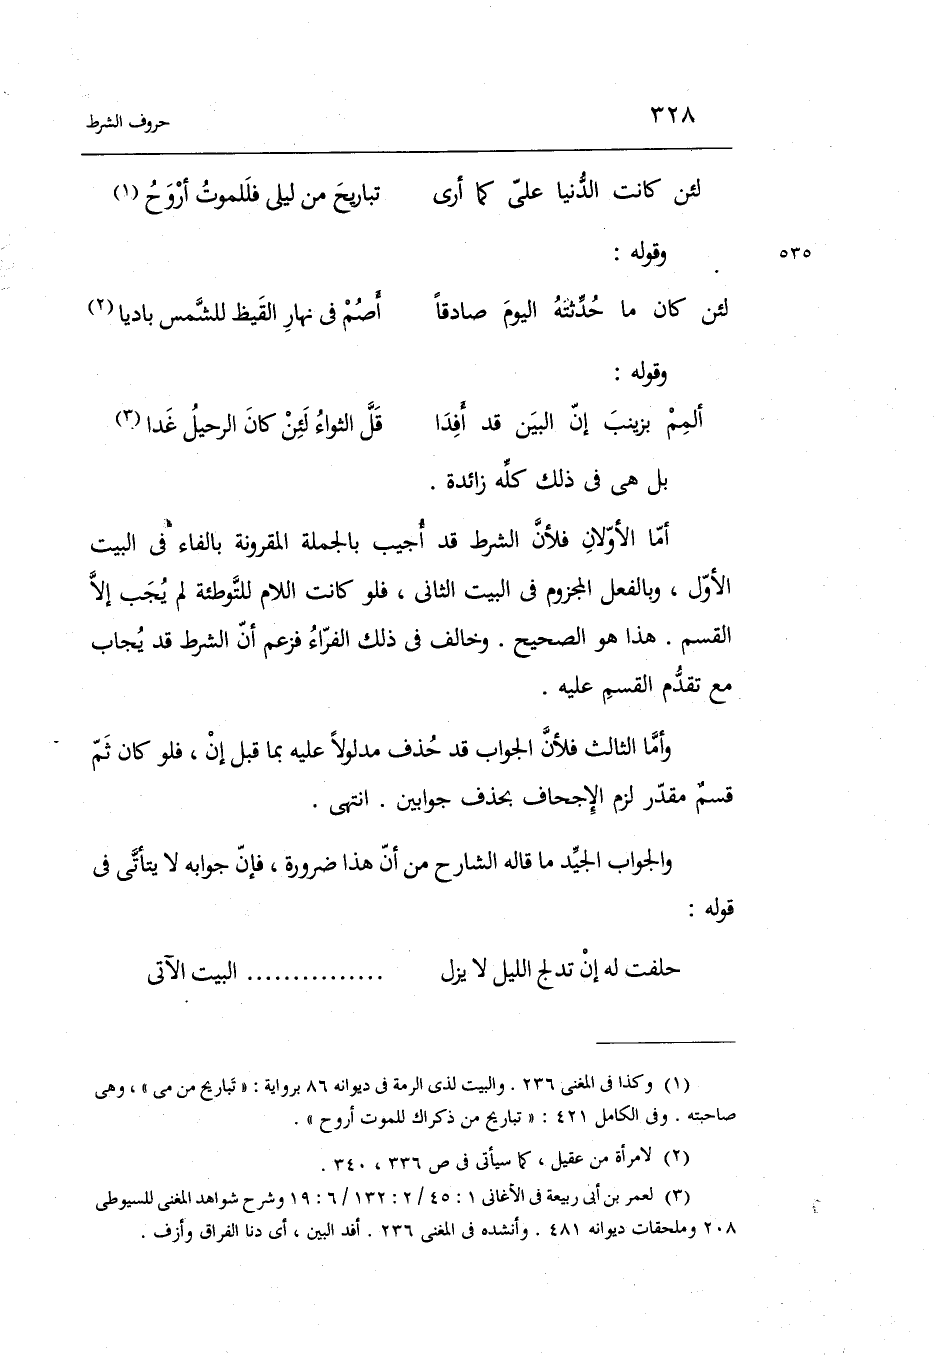 ٣٢٨ حروف الشرط
لئن كانت الدُّنيا علىّ كما أرى تباريحَ من ليلى فلَلموتُ أرْوَحُ (١)
وقوله : ٥٣٥
لئن كان ما حُدِّثتَهُ اليومَ صادقاً أَصُمْ فى نهارِ القَيظ للشَّمس باديا (٢)
وقوله :
ألمِمْ بزينبَ إنّ البيَن قد أَفِدَا قَلَّ الثواءُ لَئِنْ كانَ الرحيلُ غَدا (٣)
بل هى فى ذلك كلِّه زائدة .
أمّا الأوّلانِ فلأنَّ الشرط قد أُجيب بالجملة المقرونة بالفاء فى البيت
الأوّل ، وبالفعل المجزوم فى البيت الثانى ، فلو كانت اللام للتَّوطئة لم يُجَب إلاَّ
القسم . هذا هو الصحيح . وخالف فى ذلك الفرّاءُ فزعم أنّ الشرط قد يُجاب
مع تقدُّم القسمِ عليه .
وأمَّا الثالث فلأنَّ الجواب قد حُذف مدلولاً عليه بما قبل إنْ ، فلو كان ثَمّ
قسمٌ مقدّر لزم الإِجحاف بحذف جوابين . انتهى .
والجواب الجيِّد ما قاله الشارح من أنّ هذا ضرورة ، فإنّ جوابه لا يتأتَّى فى
قوله :
حلفت له إنْ تدلج الليل لا يزل ............... البيت الآتى
(١) وكذا فى المغنى ٢٣٦ . والبيت لذى الرمة فى ديوانه ٨٦ برواية : « تَباريح من مى » ، وهى
صاحبته . وفى الكامل ٤٢١ : « تباريح من ذكراك للموت أروح » .
(٢) لامرأة من عقيل ، كما سيأتى فى ص ٣٣٦ ، ٣٤٠ .
(٣) لعمر بن أبى ربيعة فى الأغانى ١ : ٤٥ / ٢ : ١٣٢ / ٦ : ١٩ وشرح شواهد المغنى للسيوطى
٢٠٨ وملحقات ديوانه ٤٨١ . وأنشده فى المغنى ٢٣٦ . أفد البين ، أى دنا الفراق وأزف .